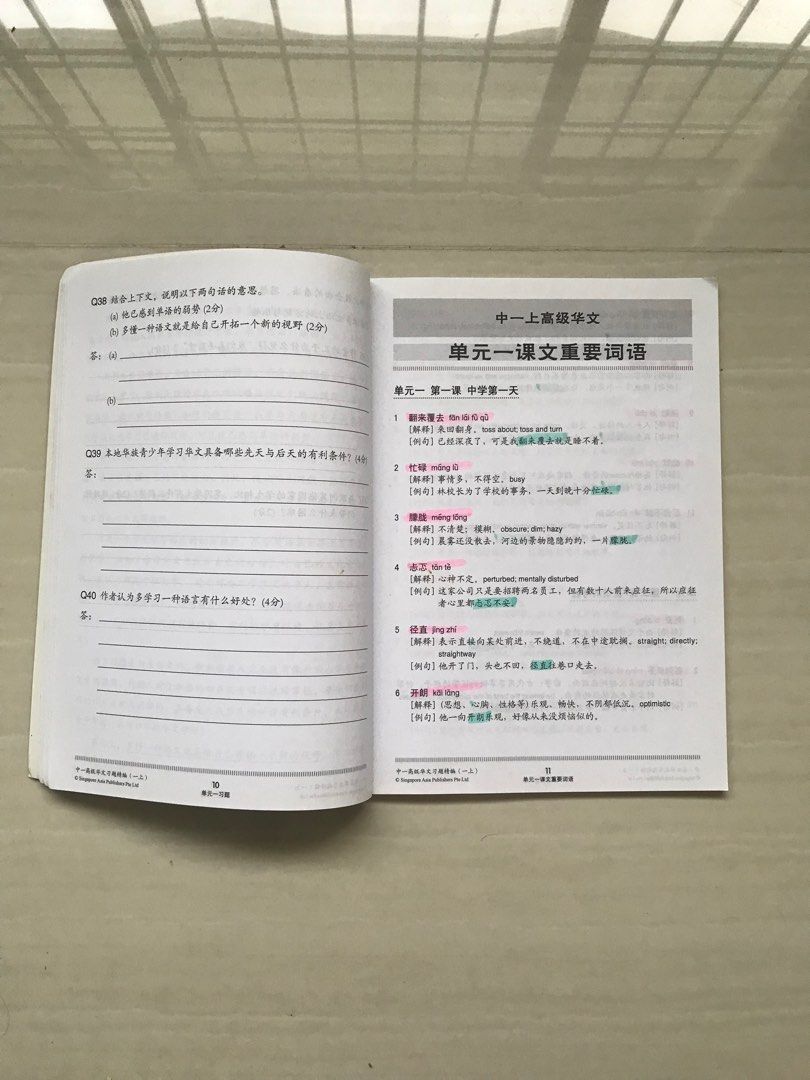 Q38 结合上下文，说明以下两句话的意思。
(a) 他已感到单语的弱势 (2分)
(b) 多懂一种语文就是给自己开拓一个新的视野 (2分)
答： (a)
(b)
Q39 本地华族青少年学习华文具备哪些先天与后天的有利条件？(4分)
答：
Q40 作者认为多学习一种语言有什么好处？(4分)
答：
中一高级华文习题精编（一上）
© Singapore Asia Publishers Pte Ltd
10
单元一习题
中一上高级华文
单元一课文重要词语
单元一 第一课 中学第一天
1 翻来覆去 fān lái fù qù
[解释] 来回翻身。toss about; toss and turn
[例句] 已经深夜了，可是我翻来覆去就是睡不着。
2 忙碌 máng lù
[解释] 事情多，不得空。busy
[例句] 林校长为了学校的事务，一天到晚十分忙碌。
3 朦胧 méng lóng
[解释] 不清楚；模糊。obscure; dim; hazy
[例句] 晨雾还没散去，河边的景物隐隐约约，一片朦胧。
4 忐忑 tǎn tè
[解释] 心神不定。perturbed; mentally disturbed
[例句] 这家公司只是要招聘两名员工，但有数十人前来应征，所以应征
者心里都忐忑不安。
5 径直 jìng zhí
[解释] 表示直接向某处前进，不绕道，不在中途耽搁。straight; directly;
straightway
[例句] 他开了门，头也不回，径直往巷口走去。
6 开朗 kāi lǎng
[解释] (思想、心胸、性格等) 乐观、畅快，不阴郁低沉。optimistic
[例句] 他一向开朗乐观，好像从来没烦恼似的。
中一高级华文习题精编（一上）
© Singapore Asia Publishers Pte Ltd
11
单元一课文重要词语